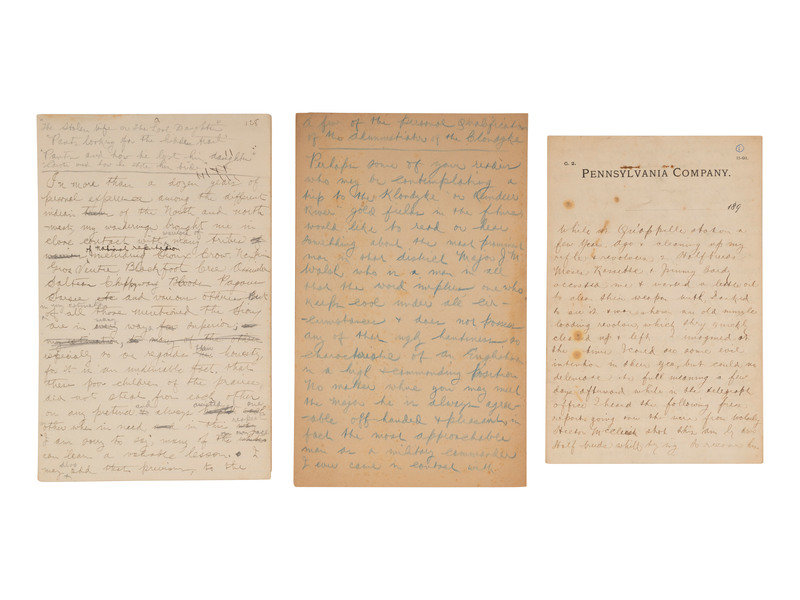 The Stolen Wife or The Lost Daughter
128
"Pants looking for the
"Pants and how he lost his daughter"
and how he stole her
In more than a dozen years of
personal experience among the different
Indians of the North and north
west, my wanderings brought me in
close contact with many tribes of
national reputation
including Sioux Crow.
Gros Ventre Blackfoot Cree
Salteau Chippeway Bloods Pagans
Sarcee etc and various others. But
of all those mentioned the Sioux
are in many ways far superior,
especially so as regards honesty,
for it is an undeniable fact, that
these poor children of the prairie,
did not steal from each other
on any pretence always
other when in need, and in this
I am sorry to say many of the
can learn a valuable lesson. I
may also add that previous, to the
A few of the personal qualifications
of the administrator of the Clondyke
Perhaps some of your readers
who may be contemplating a
trip to the Klondyke or Reindeer
River gold fields in the future
would like to read or hear
something about the most prominent
man in that district Major J M
Walsh, who is a man in all
that the word implies one who
keeps cool under all cir-
cumstances & does not possess
any of that ugly haughtiness so
characteristic of an Englishman
in a high & commanding position
No matter where you may meet
the Major he is always agree-
able off-handed & pleasant, in
fact the most approachable
man as a military commander
I ever came in contact with
1
C. 2.
PENNSYLVANIA COMPANY.
189
While at Qu'appelle station a
few years ago & cleaning up my
rifle & revolvers 2 Half breeds
Racette & Jimmy
accosted me & wanted a
to clean their weapon with I asked
to see it & it was an old muzzle
loading revolver which they quickly
cleaned up & left I imagined at
the time I could see some evil
intention in their eyes, but could not
its full meaning a few
days afterward while in the telegraph
office I heard the following
report going over the wires from
Hector McLeish shot this am by two
Half breeds while try ing to rescue his